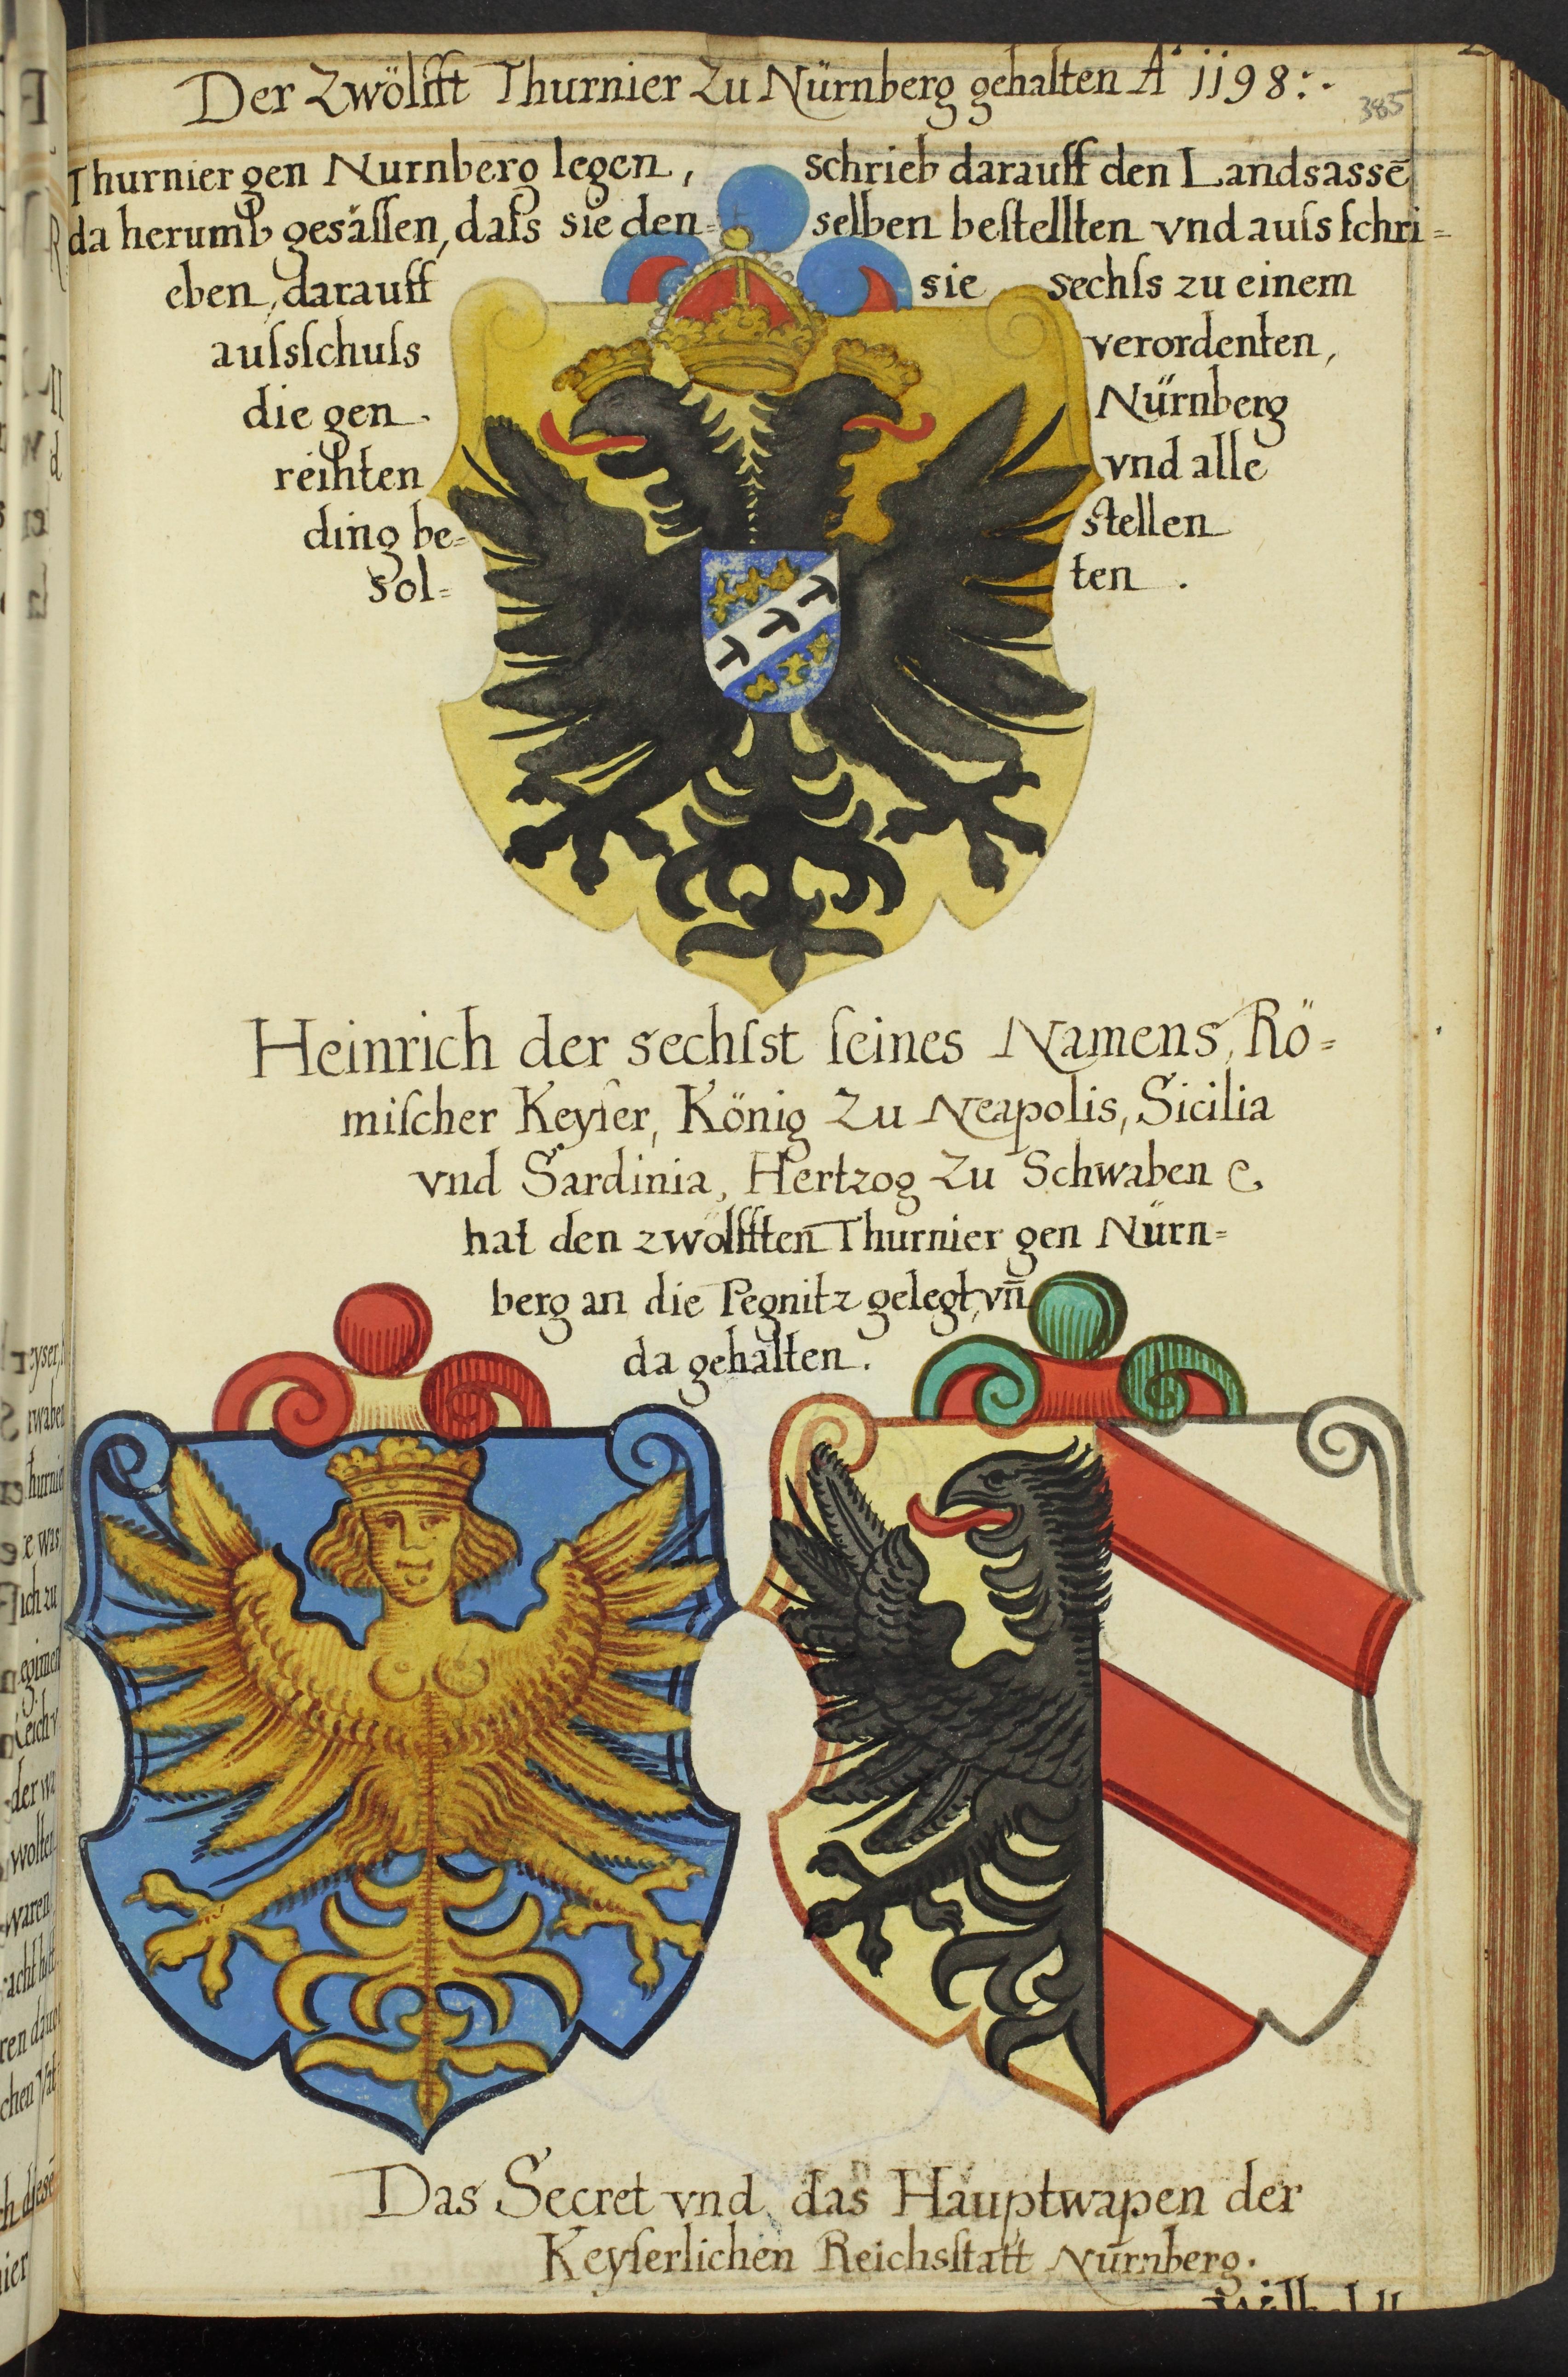 Der Zwölfft Thurnier Zu Nürnberg gehalten A° 1198:.
385
Thurnier gen Nurnberg legen, schrieb darauff den Landsassē
da herumb gesässen, daſs sie den= selben bestellten vnd auſsſchri=
eben, darauff sie sechſs zu einem
auſsſchuſs verordenten,
die gen Nürnberg
reihten vnd alle
ding be= stellen
sol= ten.
Heinrich der sechſst ſeines Namens, Rö=
miſcher Keyſer, König Zu Neapolis, Sicilia
vnd Sardinia, Hertzog Zu Schwaben ꝛc.
hat den zwölfften Thurnier gen Nürn=
berg an die Pegnitz gelegt, vn̄
da gehalten.
Das Secret vnd das Hauptwapen der
Keyſerlichen Reichsſtatt Nürnberg.